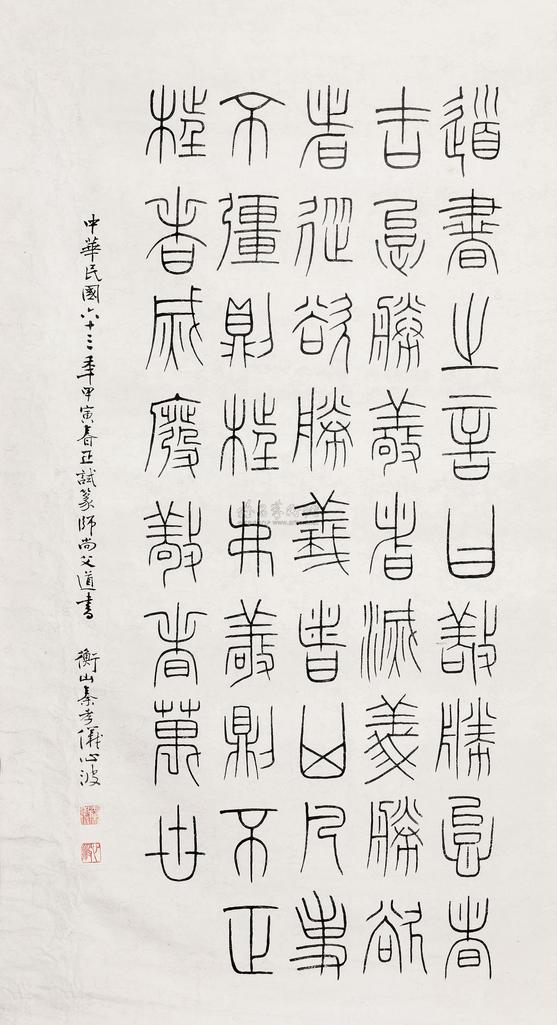 道書之言曰敬勝怠者
吉怠勝敬者滅義勝欲
者從欲勝義者凶凡事
不彊則枉弗敬則不正
枉者烕廢敬者萬世
中華民國六十三年甲寅春正試篆師尚父道書 衡山秦孝儀心波